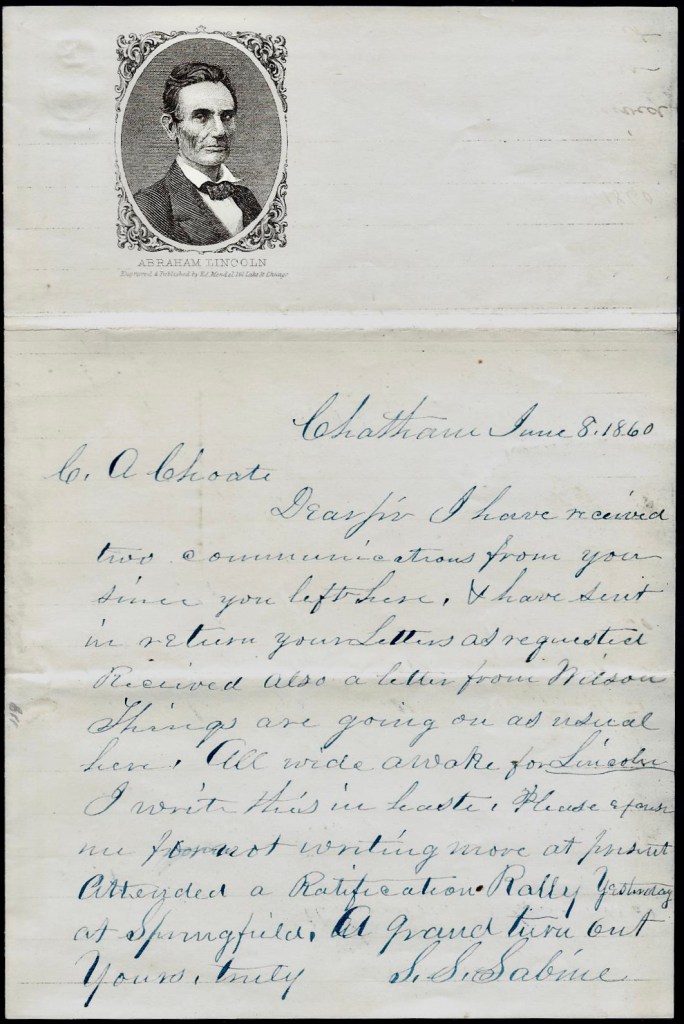 ABRAHAM LINCOLN
Engraved & Published by Ed. Mendel 162 Lake St Chicago
Chatham June 8. 1860
C. A Choate
Dear Sir I have received
two communications from you
since you left here. & have sent
in return your Letters as requested
Received also a letter from Wilson
Things are going on as usual
here. All wide awake for Lincoln
I write this in haste. Please excuse
me for not writing more at present
Attended a Ratification Rally Yesterday
at Springfield. A grand turn out
Yours, truly S. S. Sabine